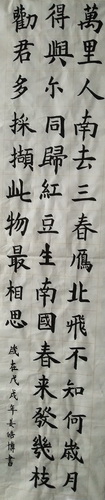 萬里人南去三春鴈北飛不知何歲月
得與尔同歸紅豆生南國春来發幾枝
勸君多採擷此物最相思
歲在戊戌年長培博書